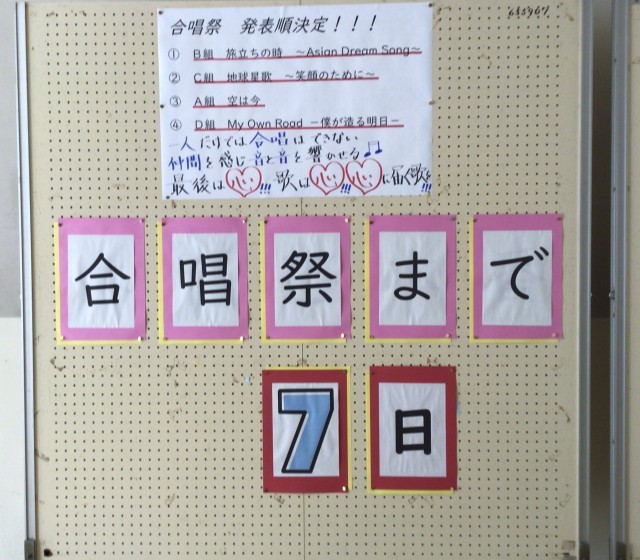 合唱祭 発表順決定！！！
① B組 旅立ちの時 ～Asian Dream Song～
② C組 地球星歌 ～笑顔のために～
③ A組 空は今
④ D組 My Own Road －僕が造る明日－
一人だけでは合唱はできない
仲間を感じ音と音を響かせる♫
最後は心!!! 歌は心!!! 心に届く歌を!!!
合唱祭まで
7日